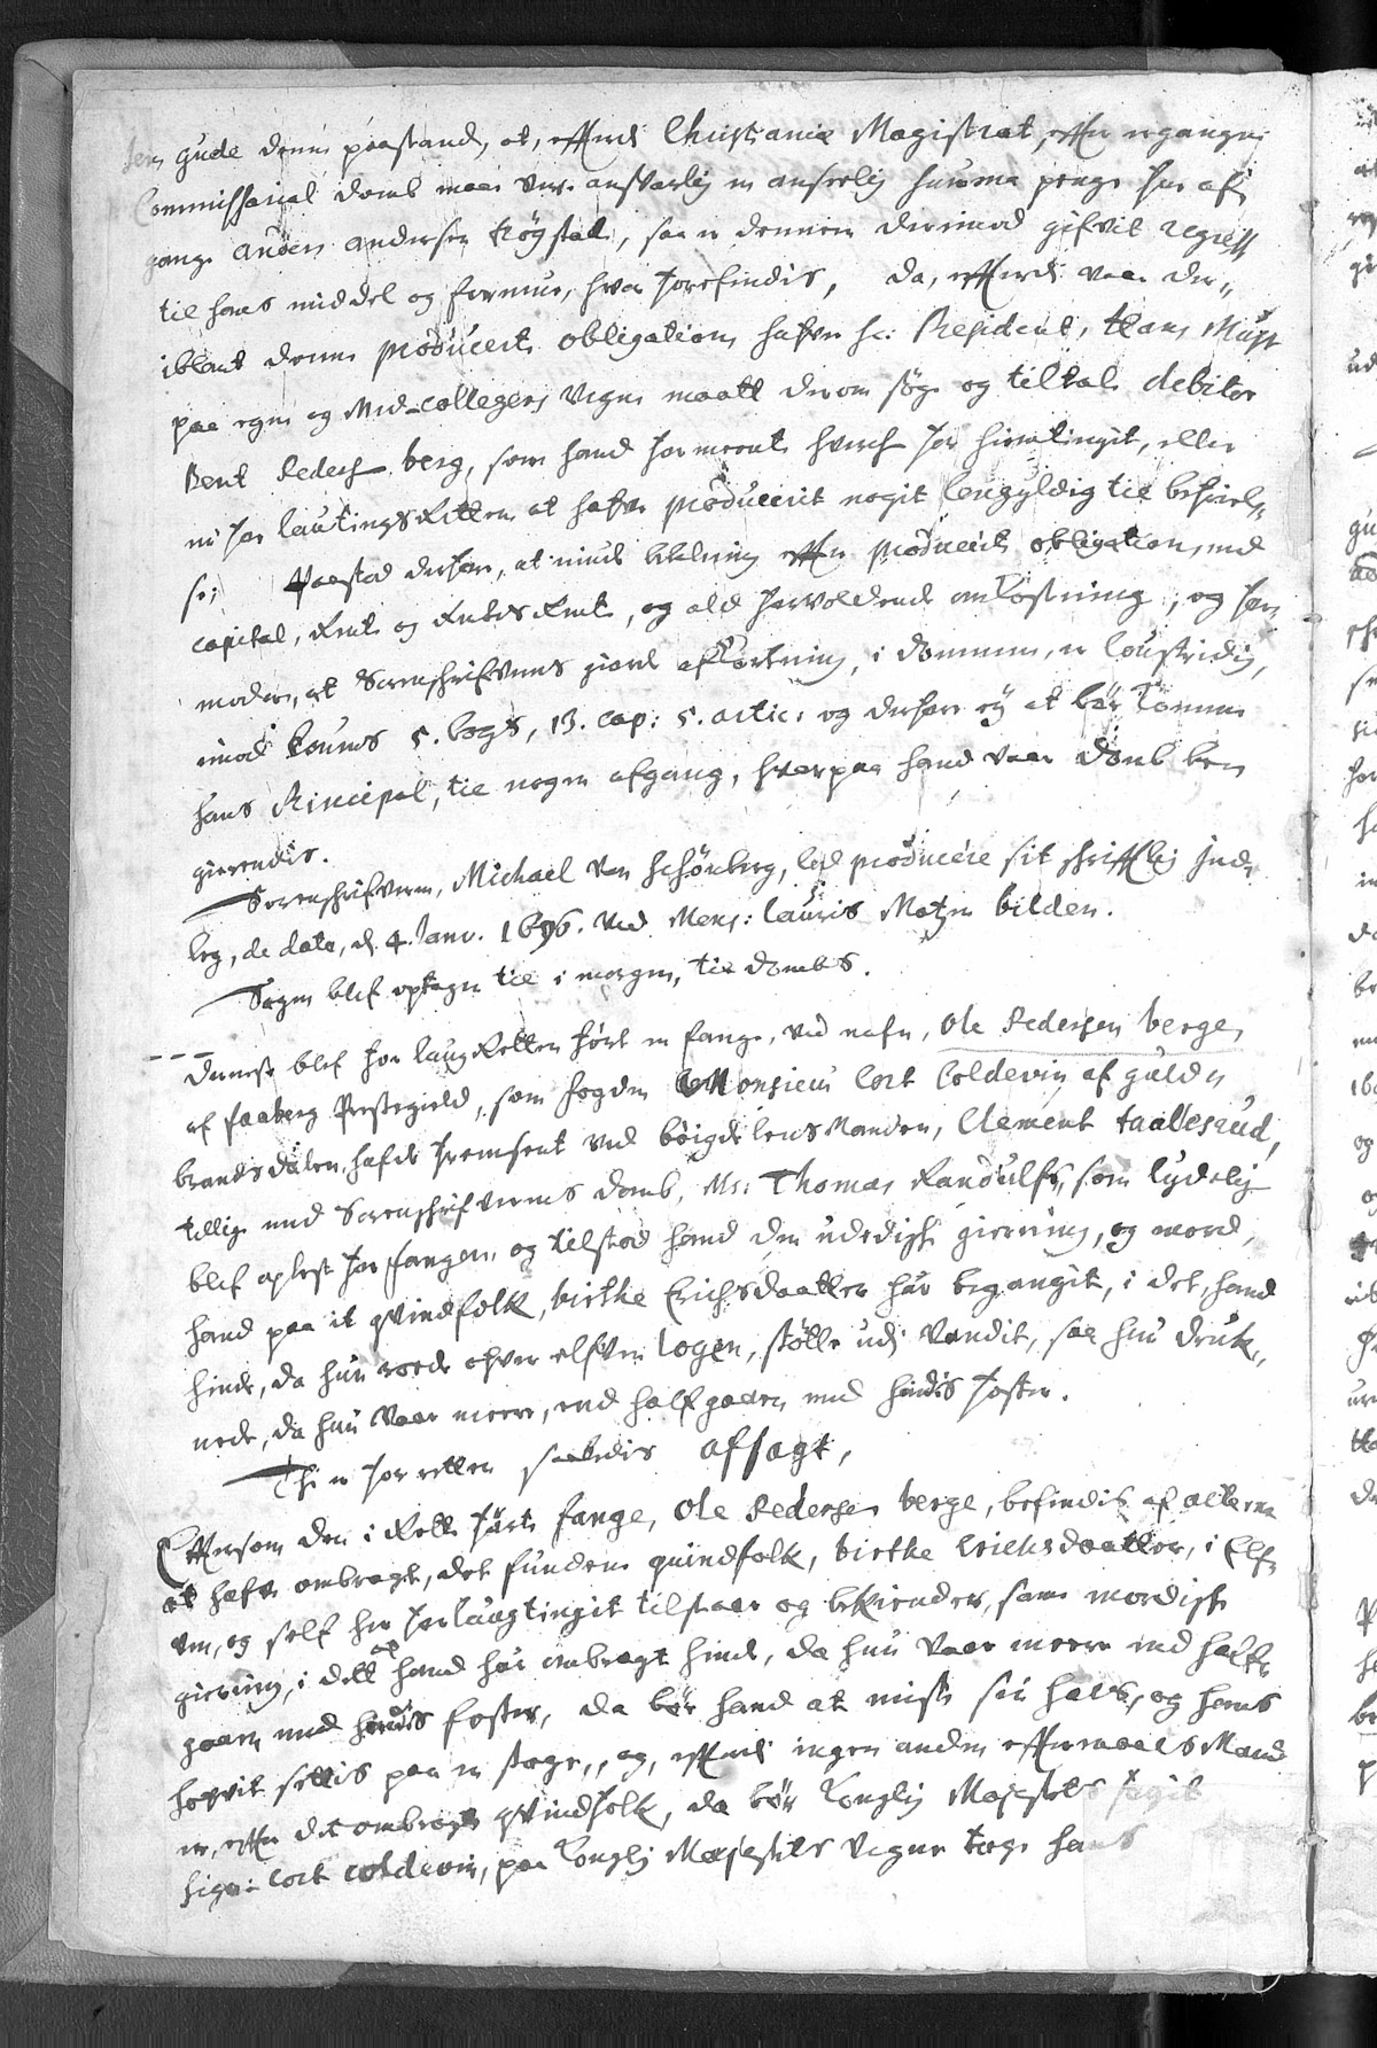 Jens Gude denne paastand, at, efftersom Christianiæ Magistrat, effter ergangne
Commissarial domb maae vere ansvarlig en anseelig summa penge for af¬
gangne Anders Andersen Trøgstad, saa er dennem derimod gifvit regress
til hans middel og formue, hvor forefindis, da, efftersom vaar der¬
iblant denne producerte obligation, hafver hr: President, Hans
paa egne og Med-collegers vegne maatt derom søge og tiltale debitor
Bent Pedersen berg, som hand formeente hverchen for hiemtingit, eller
nu for laugtings Retten at hafve producerit nogit laugyldig til befriel¬
se; Paastod derfore, at niude betaling effter producerit obligation, med
capital, Rente og Rentes Rente, og ald forvoldende omkostning, og for¬
moder, at Sorenschrifverens giorde afkortning, i dommen, er lougstridig,
imod Lovens 5. bogs, 13. cap: 5. artic: og derfore ey at bør komme
hans Principal, til nogen afgang, hvorpaa hand vaar domb be¬
gierendis.
Sorenschrifveren, Michael von Schönberg, lod producere sit schrifftlig Ind¬
leg, de dato, d. 4. Janv. 1696. ved Mons: Lauris Matzen bilden.
Sagen blef optagen til i morgen, til dombs.
Dernest blef for laugRetten ført en fange, ved nafn, Ole Pedersen berge,
af faaberg Prestegield, som fogden Monsieur Cort Coldevin af guld¬
brandsdalen, hafde fremsent ved böigde lensManden, Clement taallesrud,
tillige med Sorenschrifverens domb, Mr: Thomas Randulfs, som lydelig
blef oplest for fangen, og tilstod hand den udædiske gierning, og mord,
hand paa it qvindfolk, birthe Erichsdaatter har begangit, i det, hand
hinde, da hun roede ofver elfven logen, støtte udi vandit, saa hun druk¬
nede, da hun vaar meere, end half gaaen med hindis foster.
Thi er for retten saaledis afsagt,
Eftersom den i Rette førte fange, Ole Pedersen berge, befindis af acterne
at hafve ombragt, det fundene quindfolk, birthe Erichsdaatter, i Elf¬
ven, og self her for laugtingit tilstaar og bekiender, samme mordiske
gierning, i dett at hand har ombragt hinde, da hun vaar meere end halff¬
gaaen med hindis foster, da bør hand at miste sin hals, og hans
hofvit settis paa en stage, og, efftersom ingen anden effter maals Mand
er, effter det ombragte qvindfolk, da bør Konglig Majestets fogit
Sign: Cort Coldevin, paa Konglig Majestets vegne tage hans